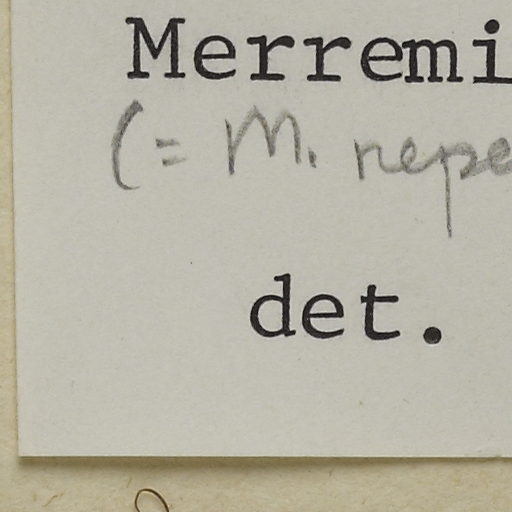 Merremi
(= M. nepe
det.